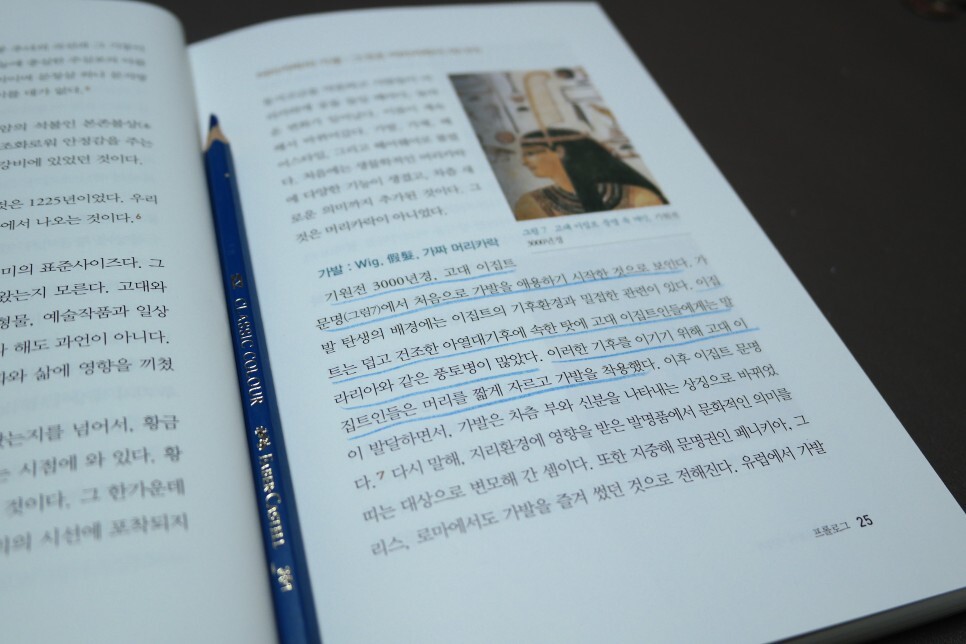 조화로워 안정감을 주는
강비에 있었던 것이다.
것은 1225년이었다. 우리
에서 나오는 것이다.6
미의 표준사이즈다. 그
왔는지 모른다. 고대와
형물, 예술작품과 일상
해도 과언이 아니다.
와 삶에 영향을 끼쳤
는지를 넘어서, 황금
시점에 와 있다. 황
것이다. 그 한가운데
의 시선에 포착되지
CLASSIC COLOUR FABER-CASTELL
다. 처음에는 생물학적인 머리카락
에 다양한 기능이 생겼고, 차츰 새
로운 의미까지 추가된 것이다. 그
것은 머리카락이 아니었다.
3000년경
가발 : Wig, 假髮, 가짜 머리카락
기원전 3000년경, 고대 이집트
문명(그림7)에서 처음으로 가발을 애용하기 시작한 것으로 보인다. 가
발 탄생의 배경에는 이집트의 기후환경과 밀접한 관련이 있다. 이집
트는 덥고 건조한 아열대기후에 속한 탓에 고대 이집트인들에게는 말
라리아와 같은 풍토병이 많았다. 이러한 기후를 이기기 위해 고대 이
집트인들은 머리를 짧게 자르고 가발을 착용했다. 이후 이집트 문명
이 발달하면서, 가발은 차츰 부와 신분을 나타내는 상징으로 바뀌었
다.7 다시 말해, 지리환경에 영향을 받은 발명품에서 문화적인 의미를
띠는 대상으로 변모해 간 셈이다. 또한 지중해 문명권인 페니키아, 그
리스, 로마에서도 가발을 즐겨 썼던 것으로 전해진다. 유럽에서 가발
프롤로그 25